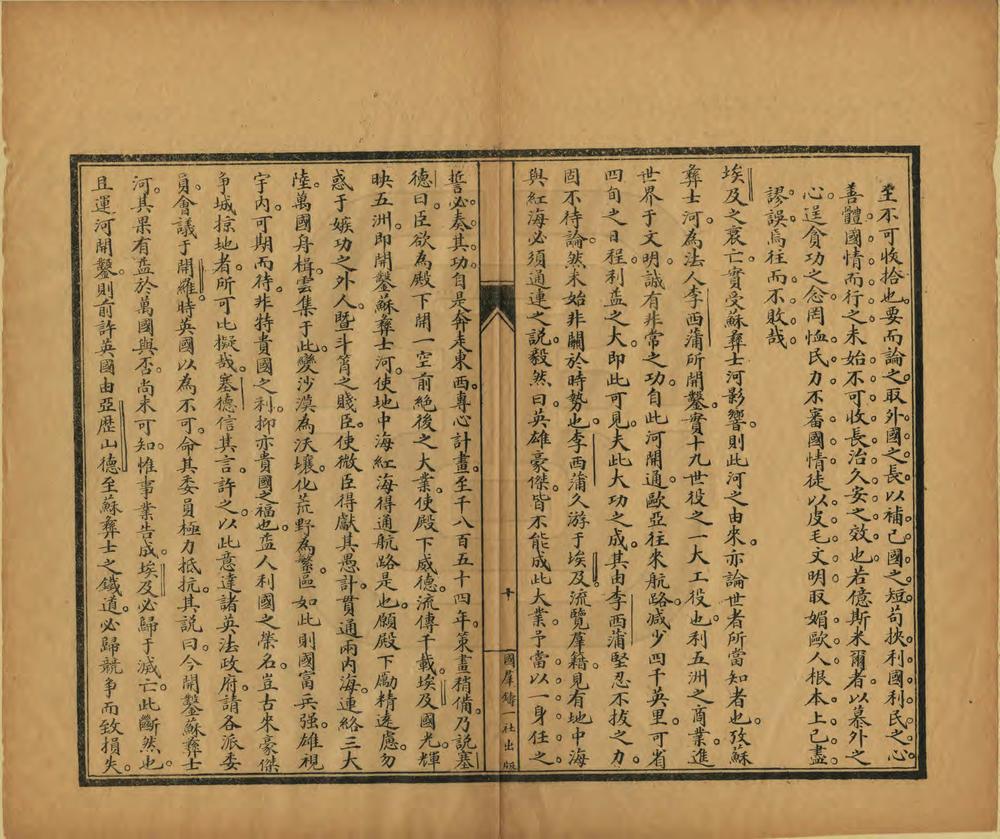 至不可收拾也要而論之取外國之長以補己國之短苟挾利國利民之心
善體國情而行之未始不可收長治久安之效也若億斯米爾者以慕外之
心逞貪功之念罔恤民力不審國情徒以皮毛文明取媚歐人根本上已盡
謬誤焉往而不敗哉
埃及之衰亡實受蘇彝士河影響則此河之由來亦論世者所當知者也攷蘇
彝士河為法人李西蒲所開鑿實十九世役之一大工役也利五洲之商業進
世界于文明誠有非常之功自此河開通歐亞往來航路減少四千英里可省
四旬之日程利益之大即此可見夫此大功之成其由李西蒲堅忍不拔之力
固不待論然未始非關於時勢也李西蒲久游于埃及流覽羣籍見有地中海
與紅海必須通連之說毅然曰英雄豪傑皆不能成此大業予當以一身任之
十
國羣鑄一社出版
誓必奏其功自是奔走東西專心計畫至千八百五十四年策畫稍備乃說塞
德曰臣欲為殿下開一空前絕後之大業使殿下威德流傳千載埃及國光輝
映五洲即開鑿蘇彝士河使地中海紅海得通航路是也願殿下勵精遠慮勿
惑于嫉功之外人暨斗筲之賤臣使微臣得獻其愚計貫通兩內海連絡三大
陸萬國舟楫雲集于此變沙漠為沃壤化荒野為繁區如此則國富兵强雄視
宇內可期而待非特貴國之利抑亦貴國之福也益人利國之榮名豈古來豪傑
爭城掠地者所可比擬哉塞德信其言許之以此意達諸英法政府請各派委
員會議于開羅時英國以為不可命其委員極力抵抗其說曰今開鑿蘇彝士
河其果有益於萬國與否尚未可知惟事業告成埃及必歸于滅亡此斷然也
且運河開鑿則前許英國由亞歷山德至蘇彝士之鐵道必歸競爭而致損失